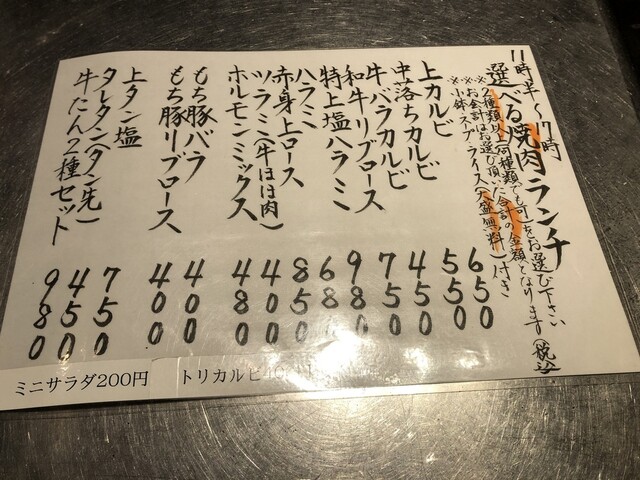 11時半〜17時
選べる焼肉ランチ
※2種類以上(何種類でも可)をお選び下さい
※お会計はお選び頂いた合計の金額となります(税込)
※小鉢・スープ・ライス(大盛無料)付き
上カルビ 650
中落ちカルビ 550
牛バラカルビ 450
和牛リブロース 750
特上塩ハラミ 980
ハラミ 680
赤身上ロース 850
ツラミ(牛ほほ肉) 400
ホルモンミックス 480
もち豚バラ 400
もち豚リブロース 400
上タン塩 750
タレタン(タン先) 450
牛たん2種セット 980
ミニサラダ200円
トリカルビ